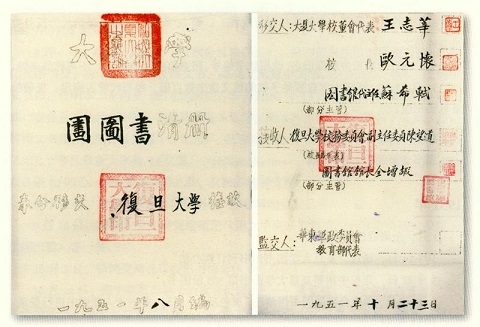 大 學
圖書清冊
復旦大學接收
一九五一年八月編
移交人:大夏大學校董會代表:王志莘
校 長 歐元懷
圖書館代主任蘇希軾
(部分主管)
接收人:復旦大學校務委員會副主任委員陳望道
圖書館館長全增嘏
(部分主管)
監交人:華東軍政委員會
教育部代表
一九五一年十月二十三日